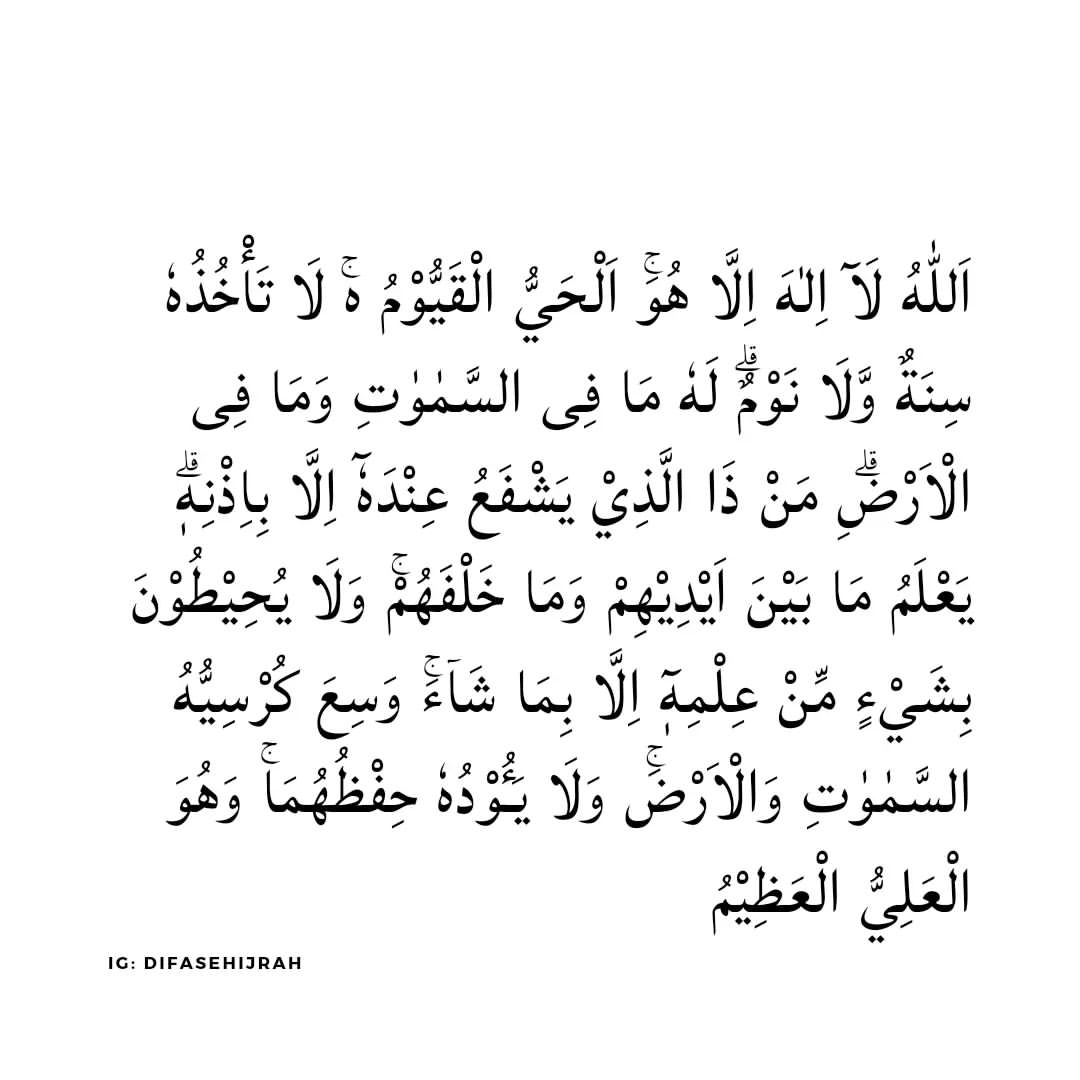 اَللّٰهُ لَآ اِلٰهَ اِلَّا هُوَۚ اَلْحَيُّ الْقَيُّوْمُ ەۚ لَا تَأْخُذُهٗ
سِنَةٌ وَّلَا نَوْمٌۗ لَهٗ مَا فِى السَّمٰوٰتِ وَمَا فِى
الْاَرْضِۗ مَنْ ذَا الَّذِيْ يَشْفَعُ عِنْدَهٗٓ اِلَّا بِاِذْنِهٖۗ
يَعْلَمُ مَا بَيْنَ اَيْدِيْهِمْ وَمَا خَلْفَهُمْۚ وَلَا يُحِيْطُوْنَ
بِشَيْءٍ مِّنْ عِلْمِهٖٓ اِلَّا بِمَا شَاۤءَۚ وَسِعَ كُرْسِيُّهُ
السَّمٰوٰتِ وَالْاَرْضَۚ وَلَا يَـُٔوْدُهٗ حِفْظُهُمَاۚ وَهُوَ
الْعَلِيُّ الْعَظِيْمُ
IG: DIFASEHIJRAH